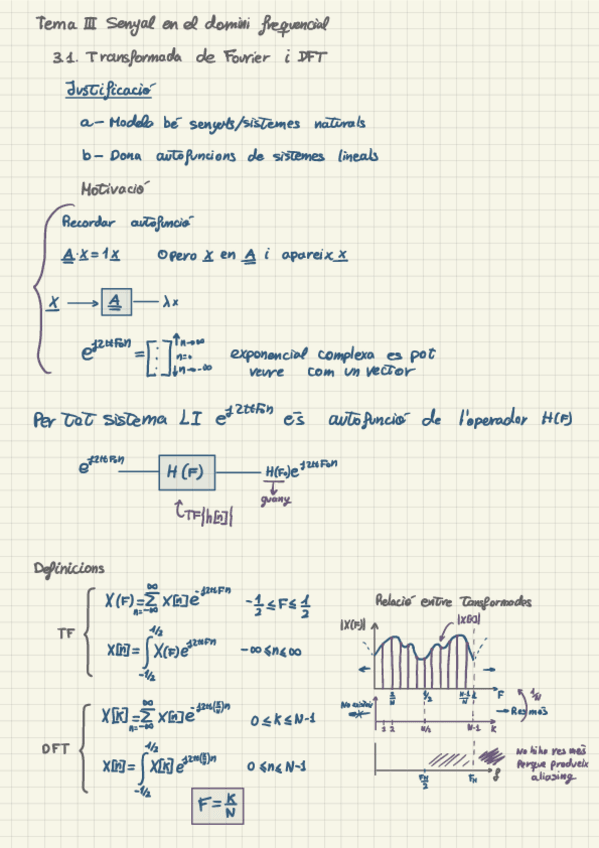 Tema III Senyal en el domini frequencial
3.1. Transformada de Fourier i DFT
Justificació
a- Modela bé senyals/sistemes naturals
b- Dona autofuncions de sistemes lineals
Motivació
Recordar autofunció
A·X=1X Opero X en A i apareix x
X → A — λx
e^j2πF₀n = [⋮] n→∞ n=0 n→-∞ exponencial complexa es pot
veure com un vector
Per tot sistema LI e^j2πF₀n és autofunció de l'operador H(F)
e^j2πF₀n — H(F) — H(F₀)e^j2πF₀n
guany
TF{h[n]}
Definicions
TF
X(F)=∑ n=-∞ ∞ X[n]e^-j2πFn -1/2≤F≤1/2
X[n]=∫ -1/2 1/2 X(F)e^j2πFn -∞≤n≤∞
DFT
X[k]=∑ n=-∞ ∞ X[n]e^-j2π(k/N)n 0≤k≤N-1
X[n]=∫ -1/2 1/2 X[k]e^j2π(k/N)n 0≤n≤N-1
F=K/N
Relació entre transformades
|X(F)| |X[k]|
1/2 N-1/N 1 F
1/N
→ Res més
1 2 N/2 N-1 K
FM/2 FM f
No hi ha res més
Perque produeix
aliasing